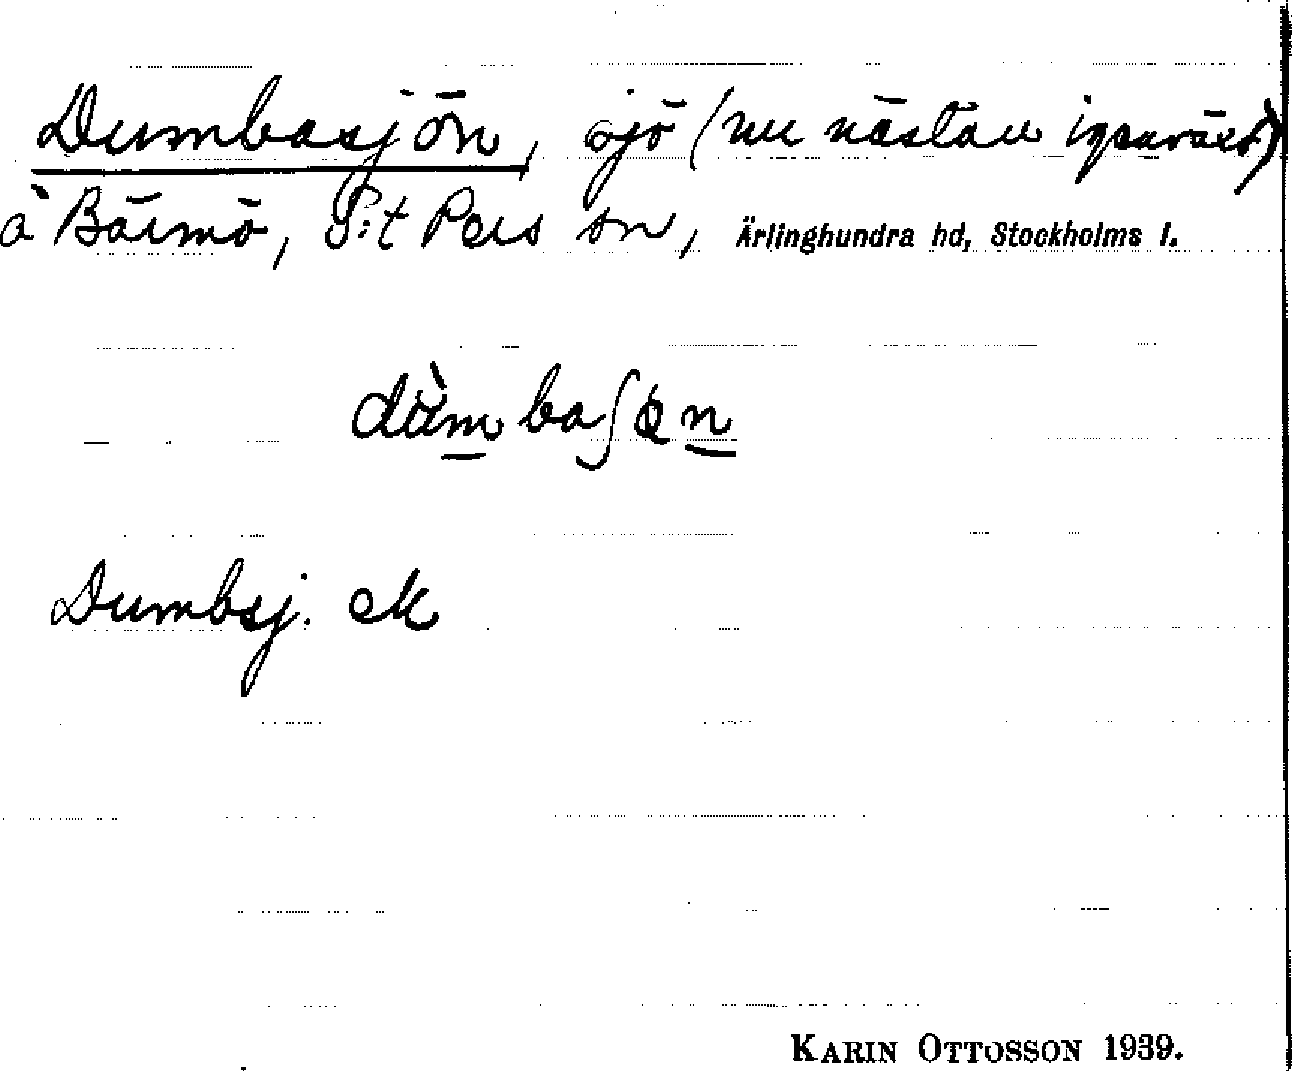 Dumbasjön, sjö (nu nästan igenväxt)
å Bärmö, S:t Pers sn, Ärlinghundra hd, Stockholms l.
dùmbaʃön
Dumbsj. ek
KARIN OTTOSSON 1939.